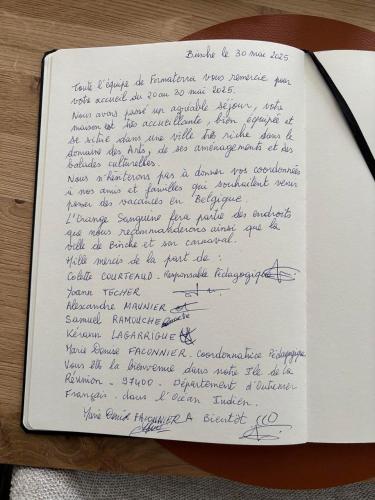 Binche le 30 mai 2025
Toute l'équipe de Formaterra vous remercie pour
votre accueil du 20 au 30 mai 2025.
Nous avons passé un agréable séjour, votre
maison est très accueillante, bien équipée et
se situe dans une ville très riche dans le
domaine des Arts, de ses aménagements et des
balades culturelles.
Nous n'hésiterons pas à donner vos coordonnées
à nos amis et familles qui souhaitent venir
passer des vacances en Belgique.
L'Orange Sanguine fera partie des endroits
que nous recommanderons ainsi que la
ville de Binche et son carnaval.
Mille mercis de la part de :
Colette COURTEAUD - Responsable Pédagogique
Yoann TECHER
Alexandre MAUNIER
Samuel RAMOUCHE
Kérann LAGARRIGUE
Marie Denise FACONNIER. Coordonnatrice Pédagogique
Vous êtes la bienvenue dans notre Ile de la
Réunion - 97400 - Département d'Outremer
Français - dans l'Océan Indien.
Marie Denise FACONNIER A Bientôt